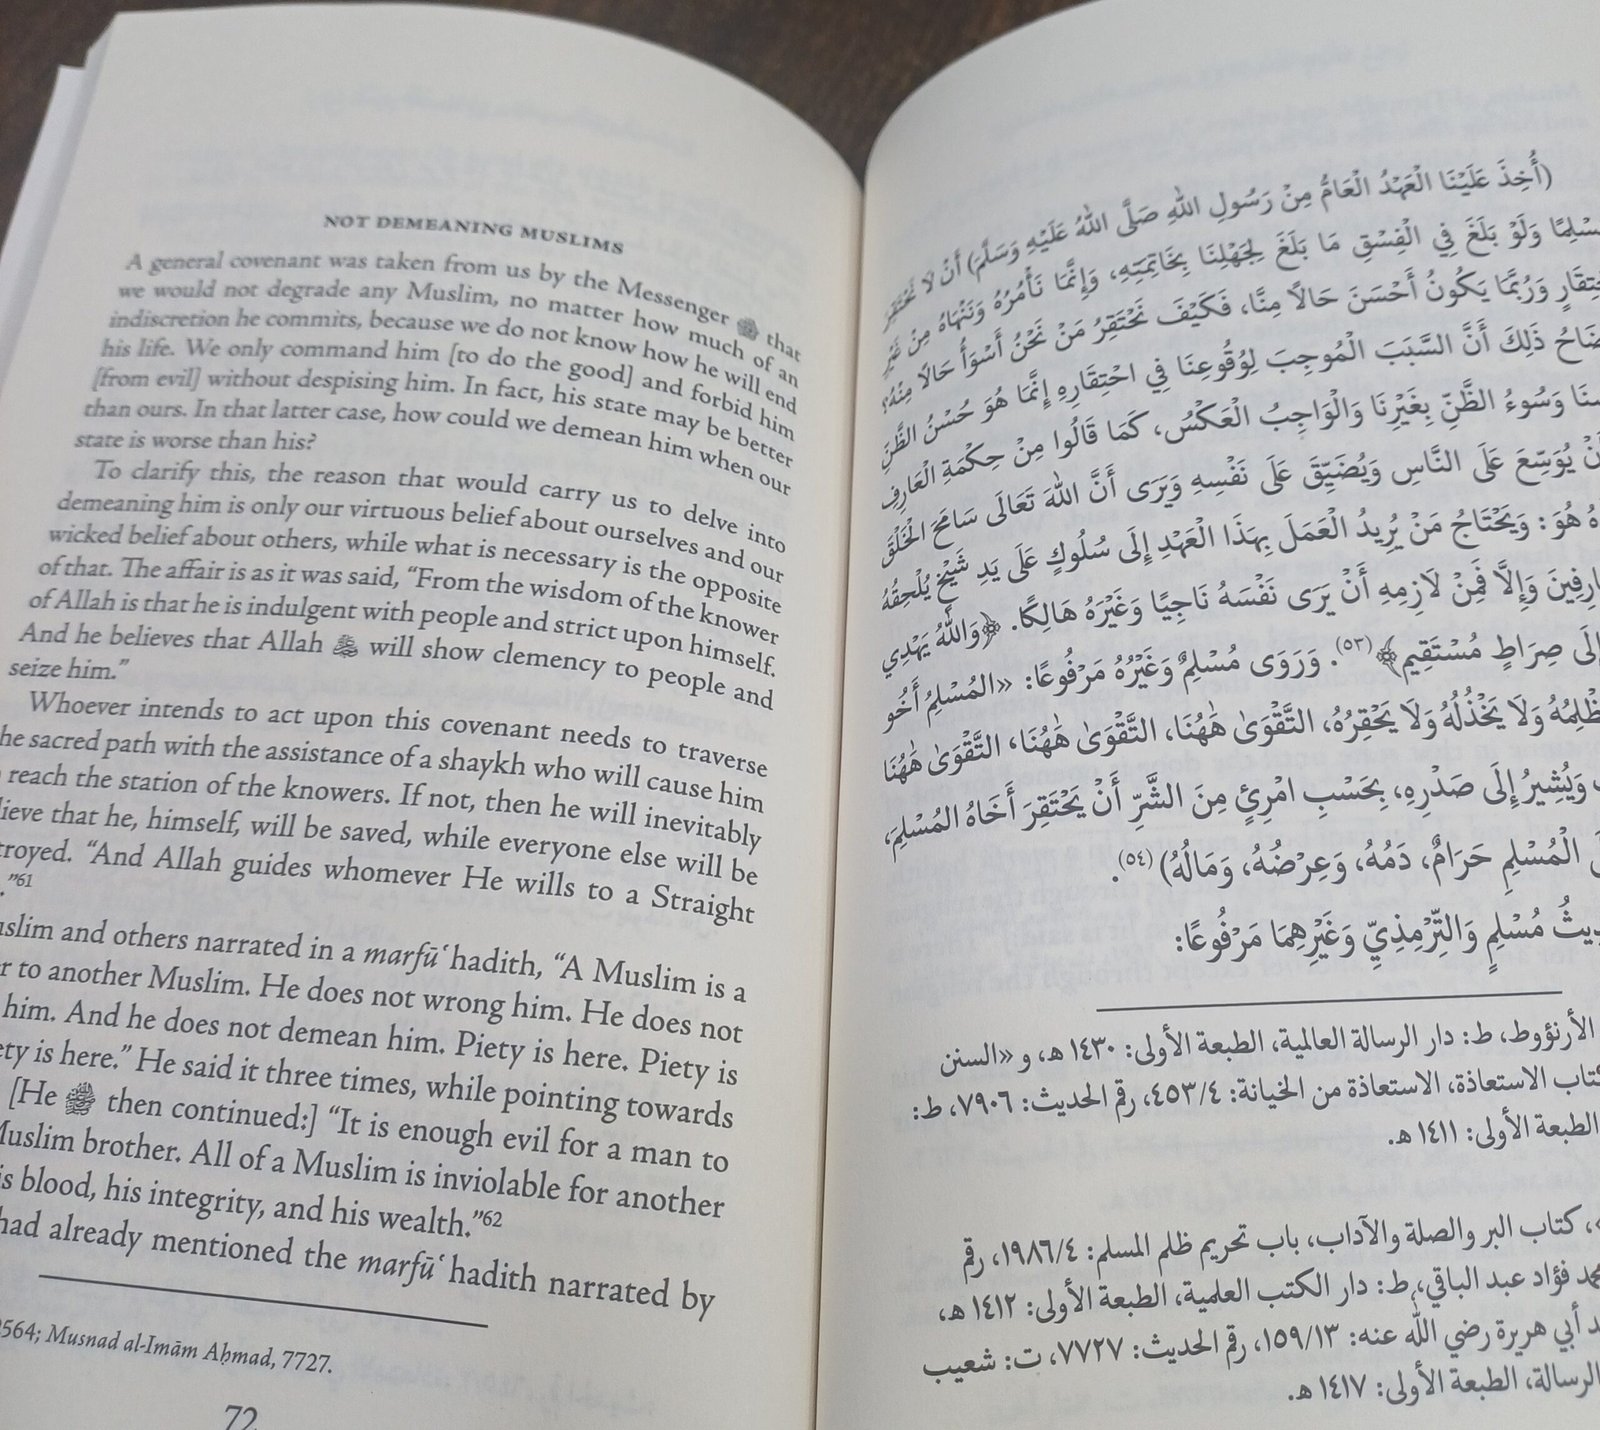 NOT DEMEANING MUSLIMS
A general covenant was taken from us by the Messenger ﷺ that
we would not degrade any Muslim, no matter how much of an
indiscretion he commits, because we do not know how he will end
his life. We only command him [to do the good] and forbid him
[from evil] without despising him. In fact, his state may be better
than ours. In that latter case, how could we demean him when our
state is worse than his?
To clarify this, the reason that would carry us to delve into
demeaning him is only our virtuous belief about ourselves and our
wicked belief about others, while what is necessary is the opposite
of that. The affair is as it was said, “From the wisdom of the knower
of Allah is that he is indulgent with people and strict upon himself.
And he believes that Allah will show clemency to people and
seize him.”
Whoever intends to act upon this covenant needs to traverse
he sacred path with the assistance of a shaykh who will cause him
reach the station of the knowers. If not, then he will inevitably
lieve that he, himself, will be saved, while everyone else will be
troyed. “And Allah guides whomever He wills to a Straight
.”61
uslim and others narrated in a marfūʿ hadith, “A Muslim is a
r to another Muslim. He does not wrong him. He does not
him. And he does not demean him. Piety is here. Piety is
ety is here.” He said it three times, while pointing towards
[He ﷺ then continued:] “It is enough evil for a man to
Muslim brother. All of a Muslim is inviolable for another
is blood, his integrity, and his wealth.”62
had already mentioned the marfūʿ hadith narrated by
2564; Musnad al-Imām Aḥmad, 7727.
72
(أُخِذَ عَلَيْنَا الْعَهْدُ الْعَامُّ مِنْ رَسُولِ اللهِ صَلَّى اللهُ عَلَيْهِ وَسَلَّمَ) أَنْ لَا نَحْتَقِرَ
سْلِمًا وَلَوْ بَلَغَ فِي الْفِسْقِ مَا بَلَغَ لِجَهْلِنَا بِخَاتِمَتِهِ، وَإِنَّمَا نَأْمُرُهُ وَنَنْهَاهُ مِنْ غَيْرِ
حْتِقَارٍ وَرُبَّمَا يَكُونُ أَحْسَنَ حَالًا مِنَّا، فَكَيْفَ نَحْتَقِرُ مَنْ نَحْنُ أَسْوَأُ حَالًا مِنْهُ؟
ضَاحُ ذَلِكَ أَنَّ السَّبَبَ الْمُوجِبَ لِوُقُوعِنَا فِي احْتِقَارِهِ إِنَّمَا هُوَ حُسْنُ الظَّنِّ
سِنَا وَسُوءُ الظَّنِّ بِغَيْرِنَا وَالْوَاجِبُ الْعَكْسُ، كَمَا قَالُوا مِنْ حِكْمَةِ الْعَارِفِ
أَنْ يُوَسِّعَ عَلَى النَّاسِ وَيُضَيِّقَ عَلَى نَفْسِهِ وَيَرَى أَنَّ اللهَ تَعَالَى سَامَحَ الْخَلْقَ
هُ هُوَ: وَيَحْتَاجُ مَنْ يُرِيدُ الْعَمَلَ بِهَذَا الْعَهْدِ إِلَى سُلُوكٍ عَلَى يَدِ شَيْخٍ يُلْحِقُهُ
ارِفِينَ وَإِلَّا فَمِنْ لَازِمِهِ أَنْ يَرَى نَفْسَهُ نَاجِيًا وَغَيْرَهُ هَالِكًا. ﴿وَاللهُ يَهْدِي
إِلَى صِرَاطٍ مُسْتَقِيمٍ﴾(٥٣). وَرَوَى مُسْلِمٌ وَغَيْرُهُ مَرْفُوعًا: «المُسْلِمُ أَخُو
ظْلِمُهُ وَلَا يَخْذُلُهُ وَلَا يَحْقِرُهُ، التَّقْوَىٰ هَٰهُنَا، التَّقْوَىٰ هَٰهُنَا، التَّقْوَىٰ هَٰهُنَا
وَيُشِيرُ إِلَى صَدْرِهِ، بِحَسْبِ امْرِئٍ مِنَ الشَّرِّ أَنْ يَحْتَقِرَ أَخَاهُ المُسْلِمَ،
الْمُسْلِمِ حَرَامٌ، دَمُهُ، وَعِرْضُهُ، وَمَالُهُ)(٥٤).
دِيثُ مُسْلِمٍ وَالتِّرْمِذِيِّ وَغَيْرِهِمَا مَرْفُوعًا:
الأرنؤوط، ط: دار الرسالة العالمية، الطبعة الأولى: ١٤٣٠ هـ، و «السنن
كتاب الاستعاذة، الاستعاذة من الخيانة: ٤٥٣/٤، رقم الحديث: ٧٩٠٦، ط:
الطبعة الأولى: ١٤١١ هـ.
»، كتاب البر والصلة والآداب، باب تحريم ظلم المسلم: ١٩٨٦/٤، رقم
محمد فؤاد عبد الباقي، ط: دار الكتب العلمية، الطبعة الأولى: ١٤١٢ هـ،
د أبي هريرة رضي الله عنه: ١٥٩/١٣، رقم الحديث: ٧٧٢٧، ت: شعيب
الرسالة، الطبعة الأولى: ١٤١٧ هـ.